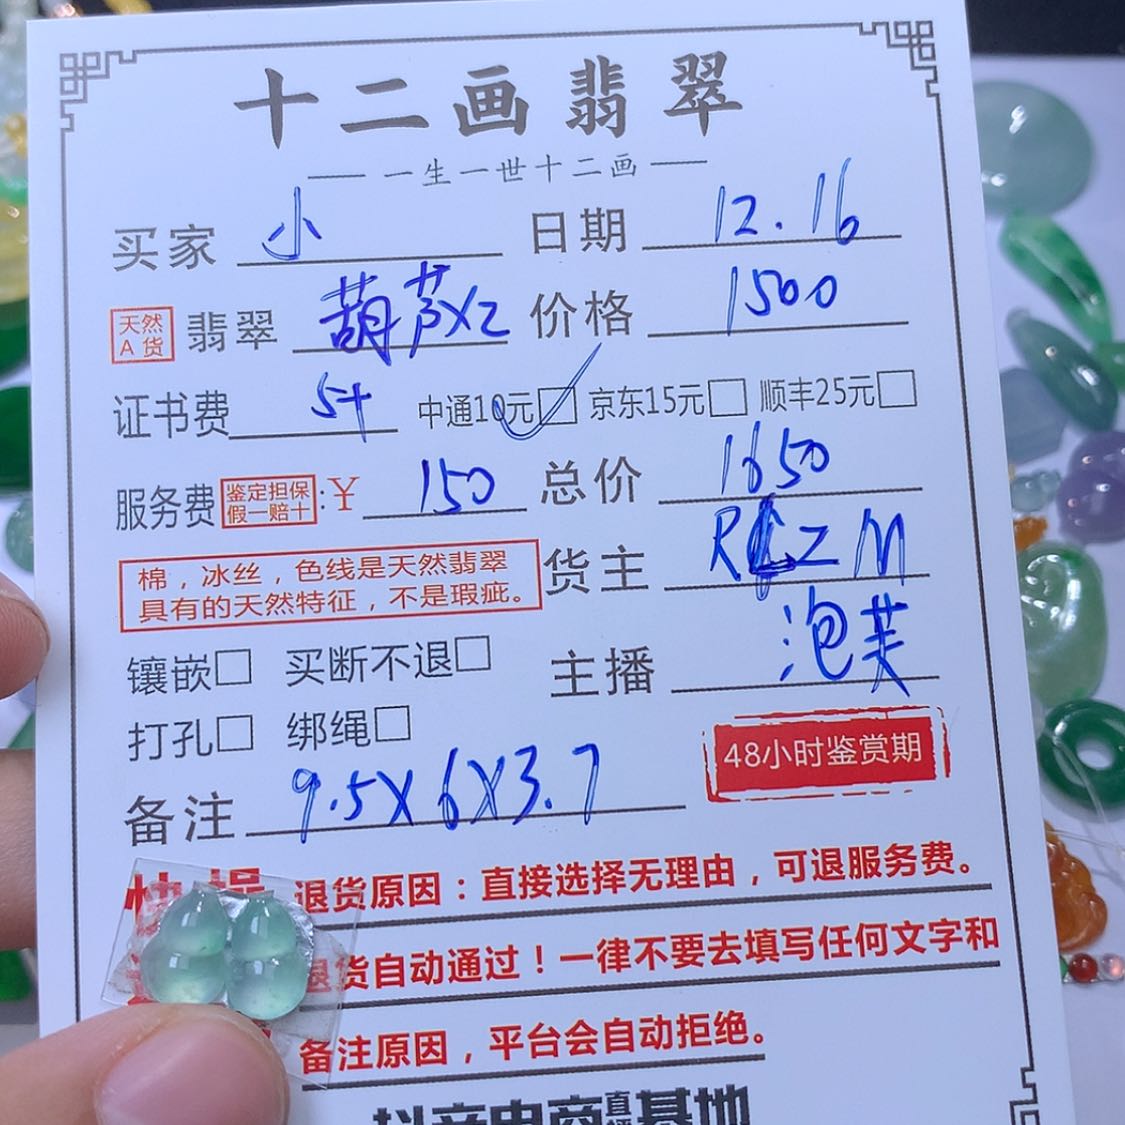 十二画翡翠
一生一世十二画
买家 小 日期 12.16
天然A货 翡翠 葫芦X2 价格 1500
证书费 5+ 中通10元 京东15元 顺丰25元
服务费 鉴定担保假一赔十:¥ 150 总价 1650
棉，冰丝，色线是天然翡翠
具有的天然特征，不是瑕疵。
货主 R ZM
镶嵌 买断不退 主播 泡芙
打孔 绑绳
48小时鉴赏期
备注 9.5X6X3.7
退货原因：直接选择无理由，可退服务费。
退货自动通过！一律不要去填写任何文字和
备注原因，平台会自动拒绝。
抖音电商直播基地